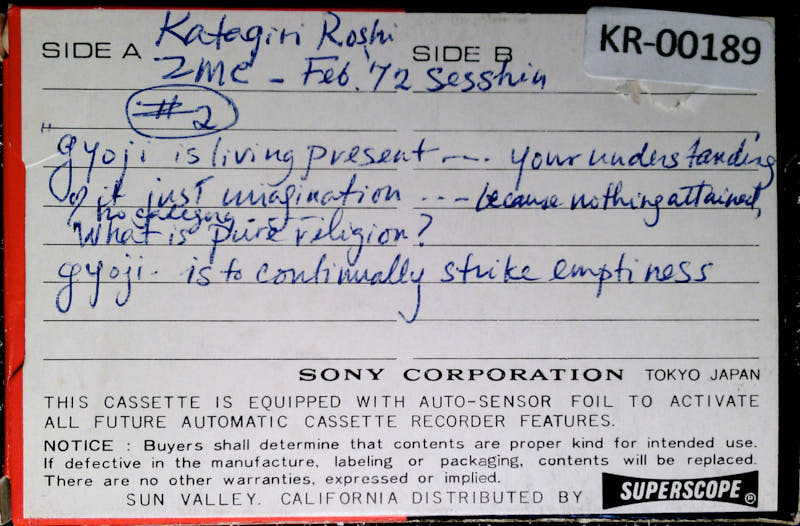 SIDE A Katagiri Roshi SIDE B KR-00189
ZMC - Feb. '72 Sesshin
#2
"gyoji is living present ---. your understanding
of it just imagination --- because nothing attained,
no category
"What is pure religion?
gyoji- is to continually strike emptiness
SONY CORPORATION TOKYO JAPAN
THIS CASSETTE IS EQUIPPED WITH AUTO-SENSOR FOIL TO ACTIVATE
ALL FUTURE AUTOMATIC CASSETTE RECORDER FEATURES.
NOTICE : Buyers shall determine that contents are proper kind for intended use.
If defective in the manufacture, labeling or packaging, contents will be replaced.
There are no other warranties, expressed or implied.
SUN VALLEY. CALIFORNIA DISTRIBUTED BY SUPERSCOPE